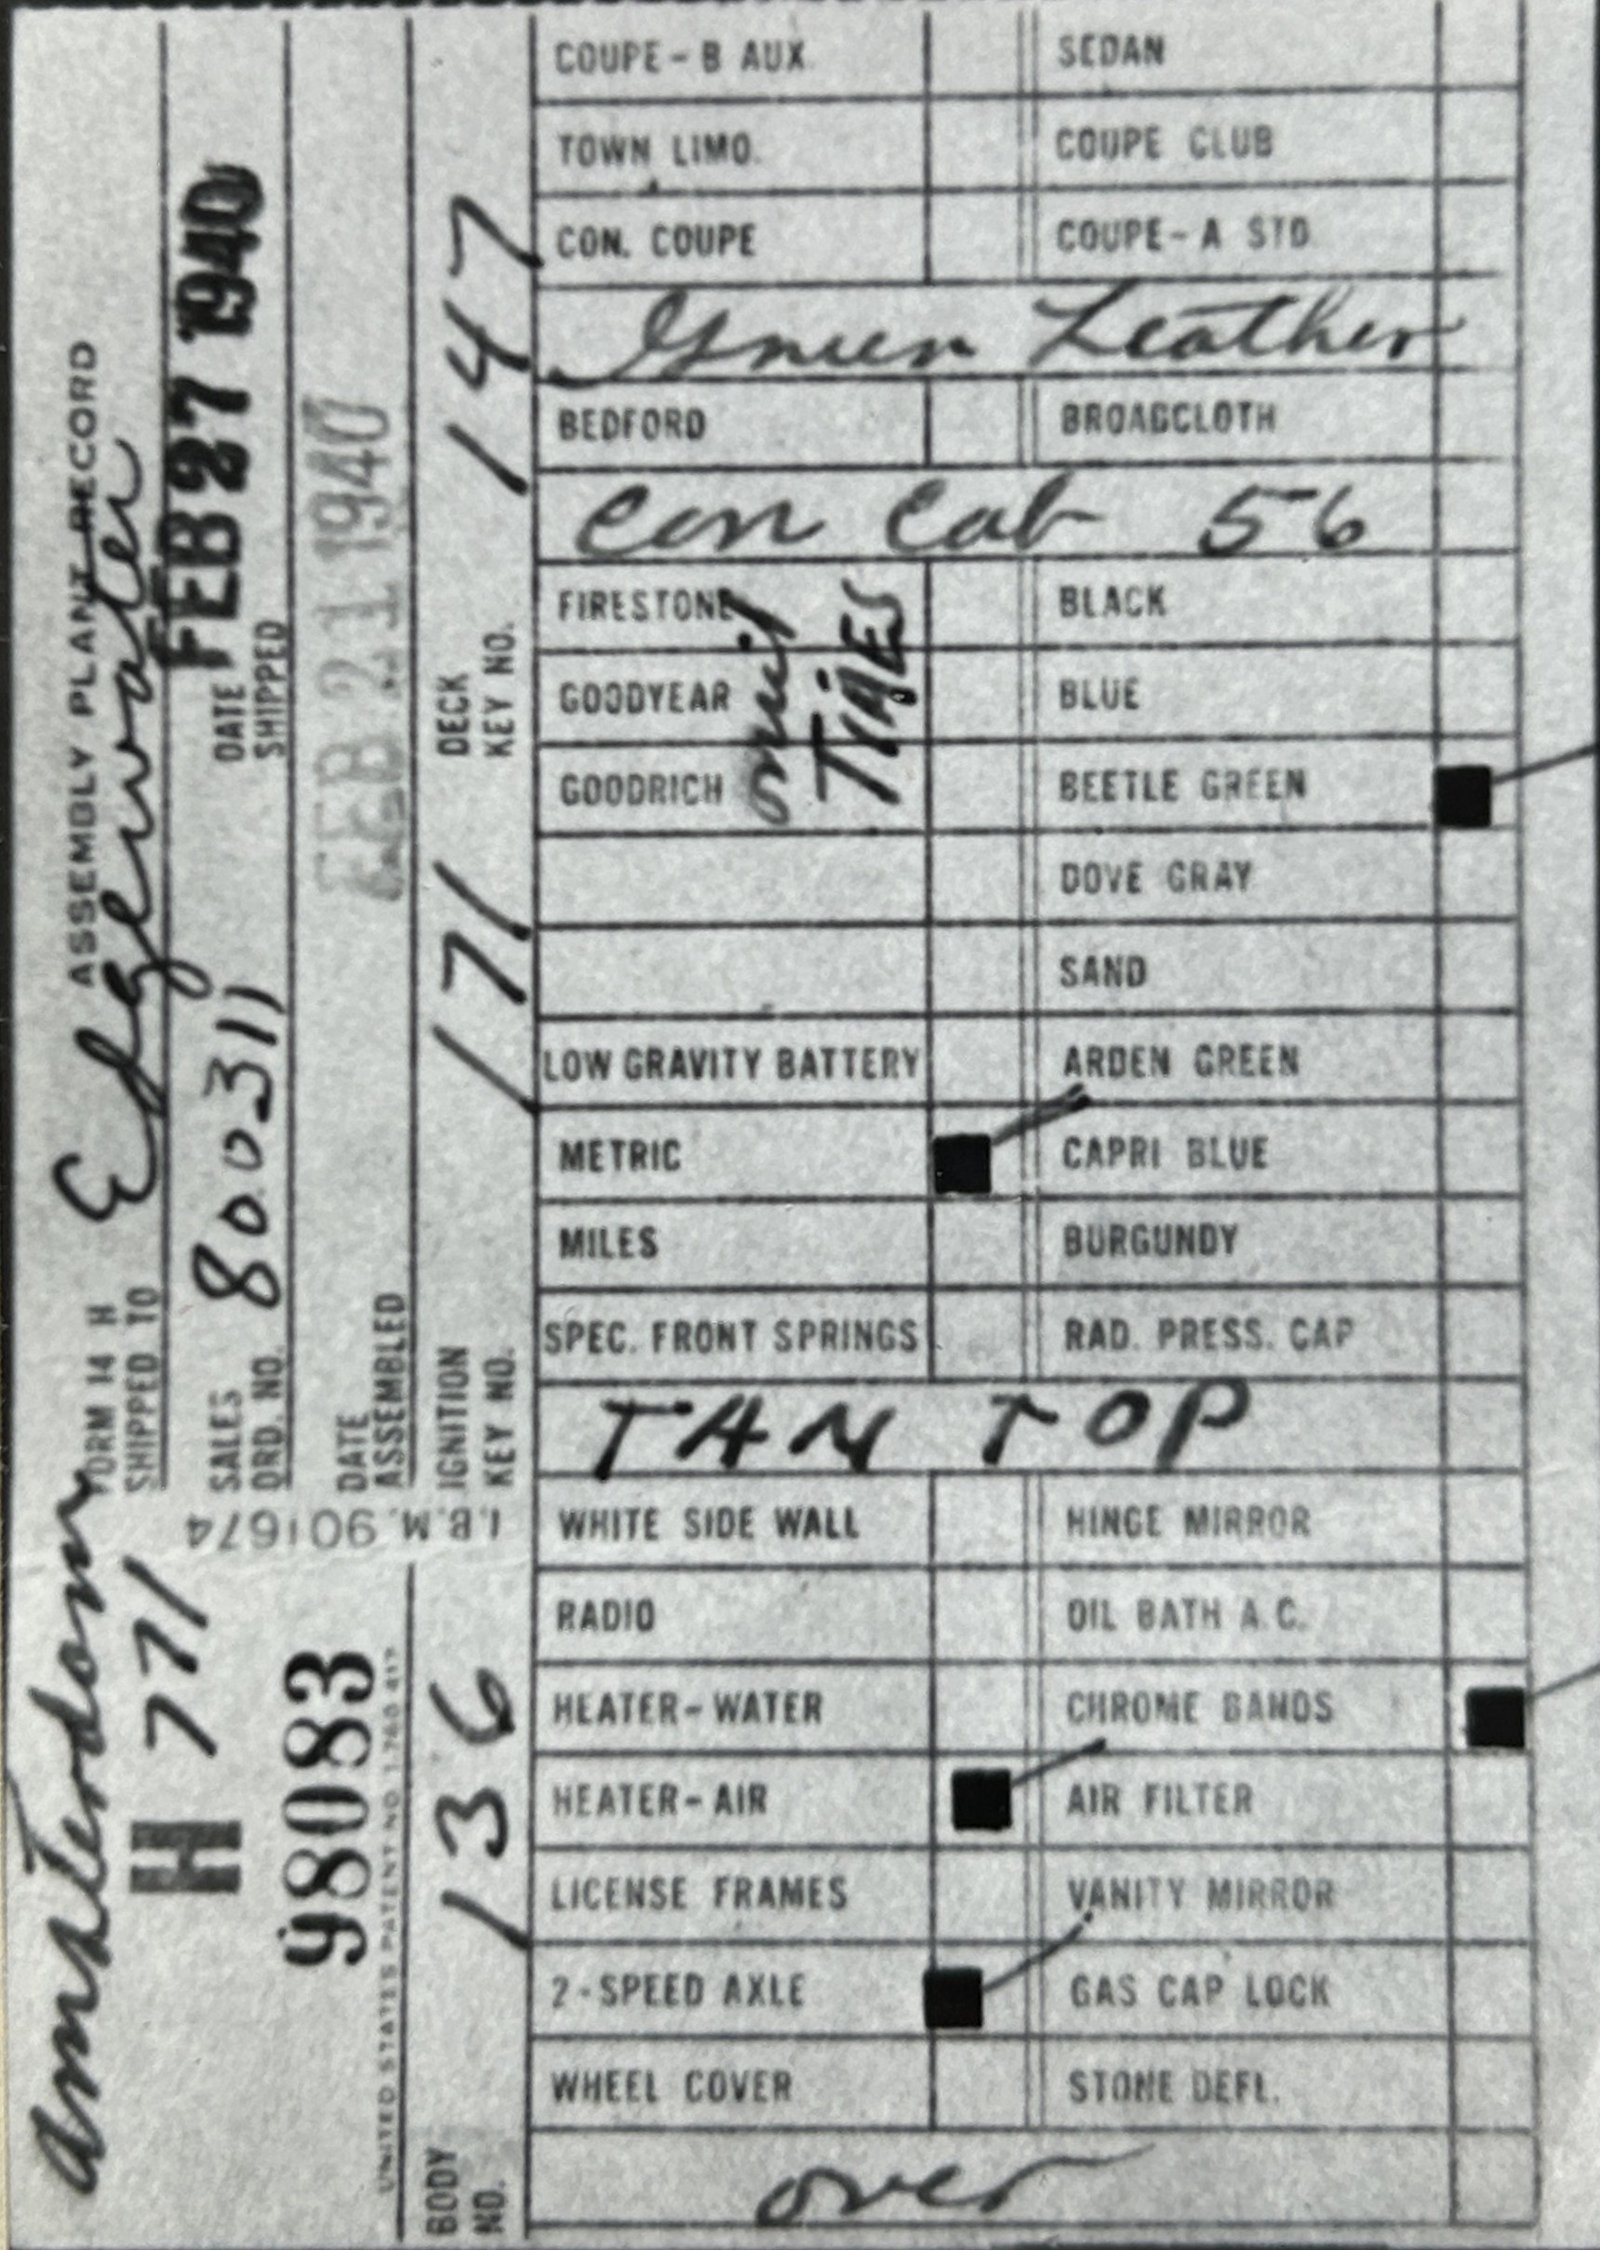 Amsterdam
FORM 14 H ASSEMBLY PLANT RECORD
SHIPPED TO Edgewater
H 771
SALES ORD. NO. 800311 DATE SHIPPED FEB 27 1940
98083
I.B.M. 901674
DATE ASSEMBLED FEB 21 1940
UNITED STATES PATENT NO. 1,780,
BODY NO. 136 IGNITION KEY NO. 171 DECK KEY NO. 147
COUPE-B AUX. SEDAN
TOWN LIMO. COUPE CLUB
CON. COUPE COUPE-A STD.
Green Leather
BEDFORD BROADCLOTH
Con Cab 56
FIRESTONE BLACK
GOODYEAR BLUE
GOODRICH BEETLE GREEN
TIRES
DOVE GRAY
SAND
LOW GRAVITY BATTERY ARDEN GREEN
METRIC CAPRI BLUE
MILES BURGUNDY
SPEC. FRONT SPRINGS RAD. PRESS. CAP
TAN TOP
WHITE SIDE WALL HINGE MIRROR
RADIO OIL BATH A.C.
HEATER-WATER CHROME BANDS
HEATER-AIR AIR FILTER
LICENSE FRAMES VANITY MIRROR
2-SPEED AXLE GAS CAP LOCK
WHEEL COVER STONE DEFL.
over